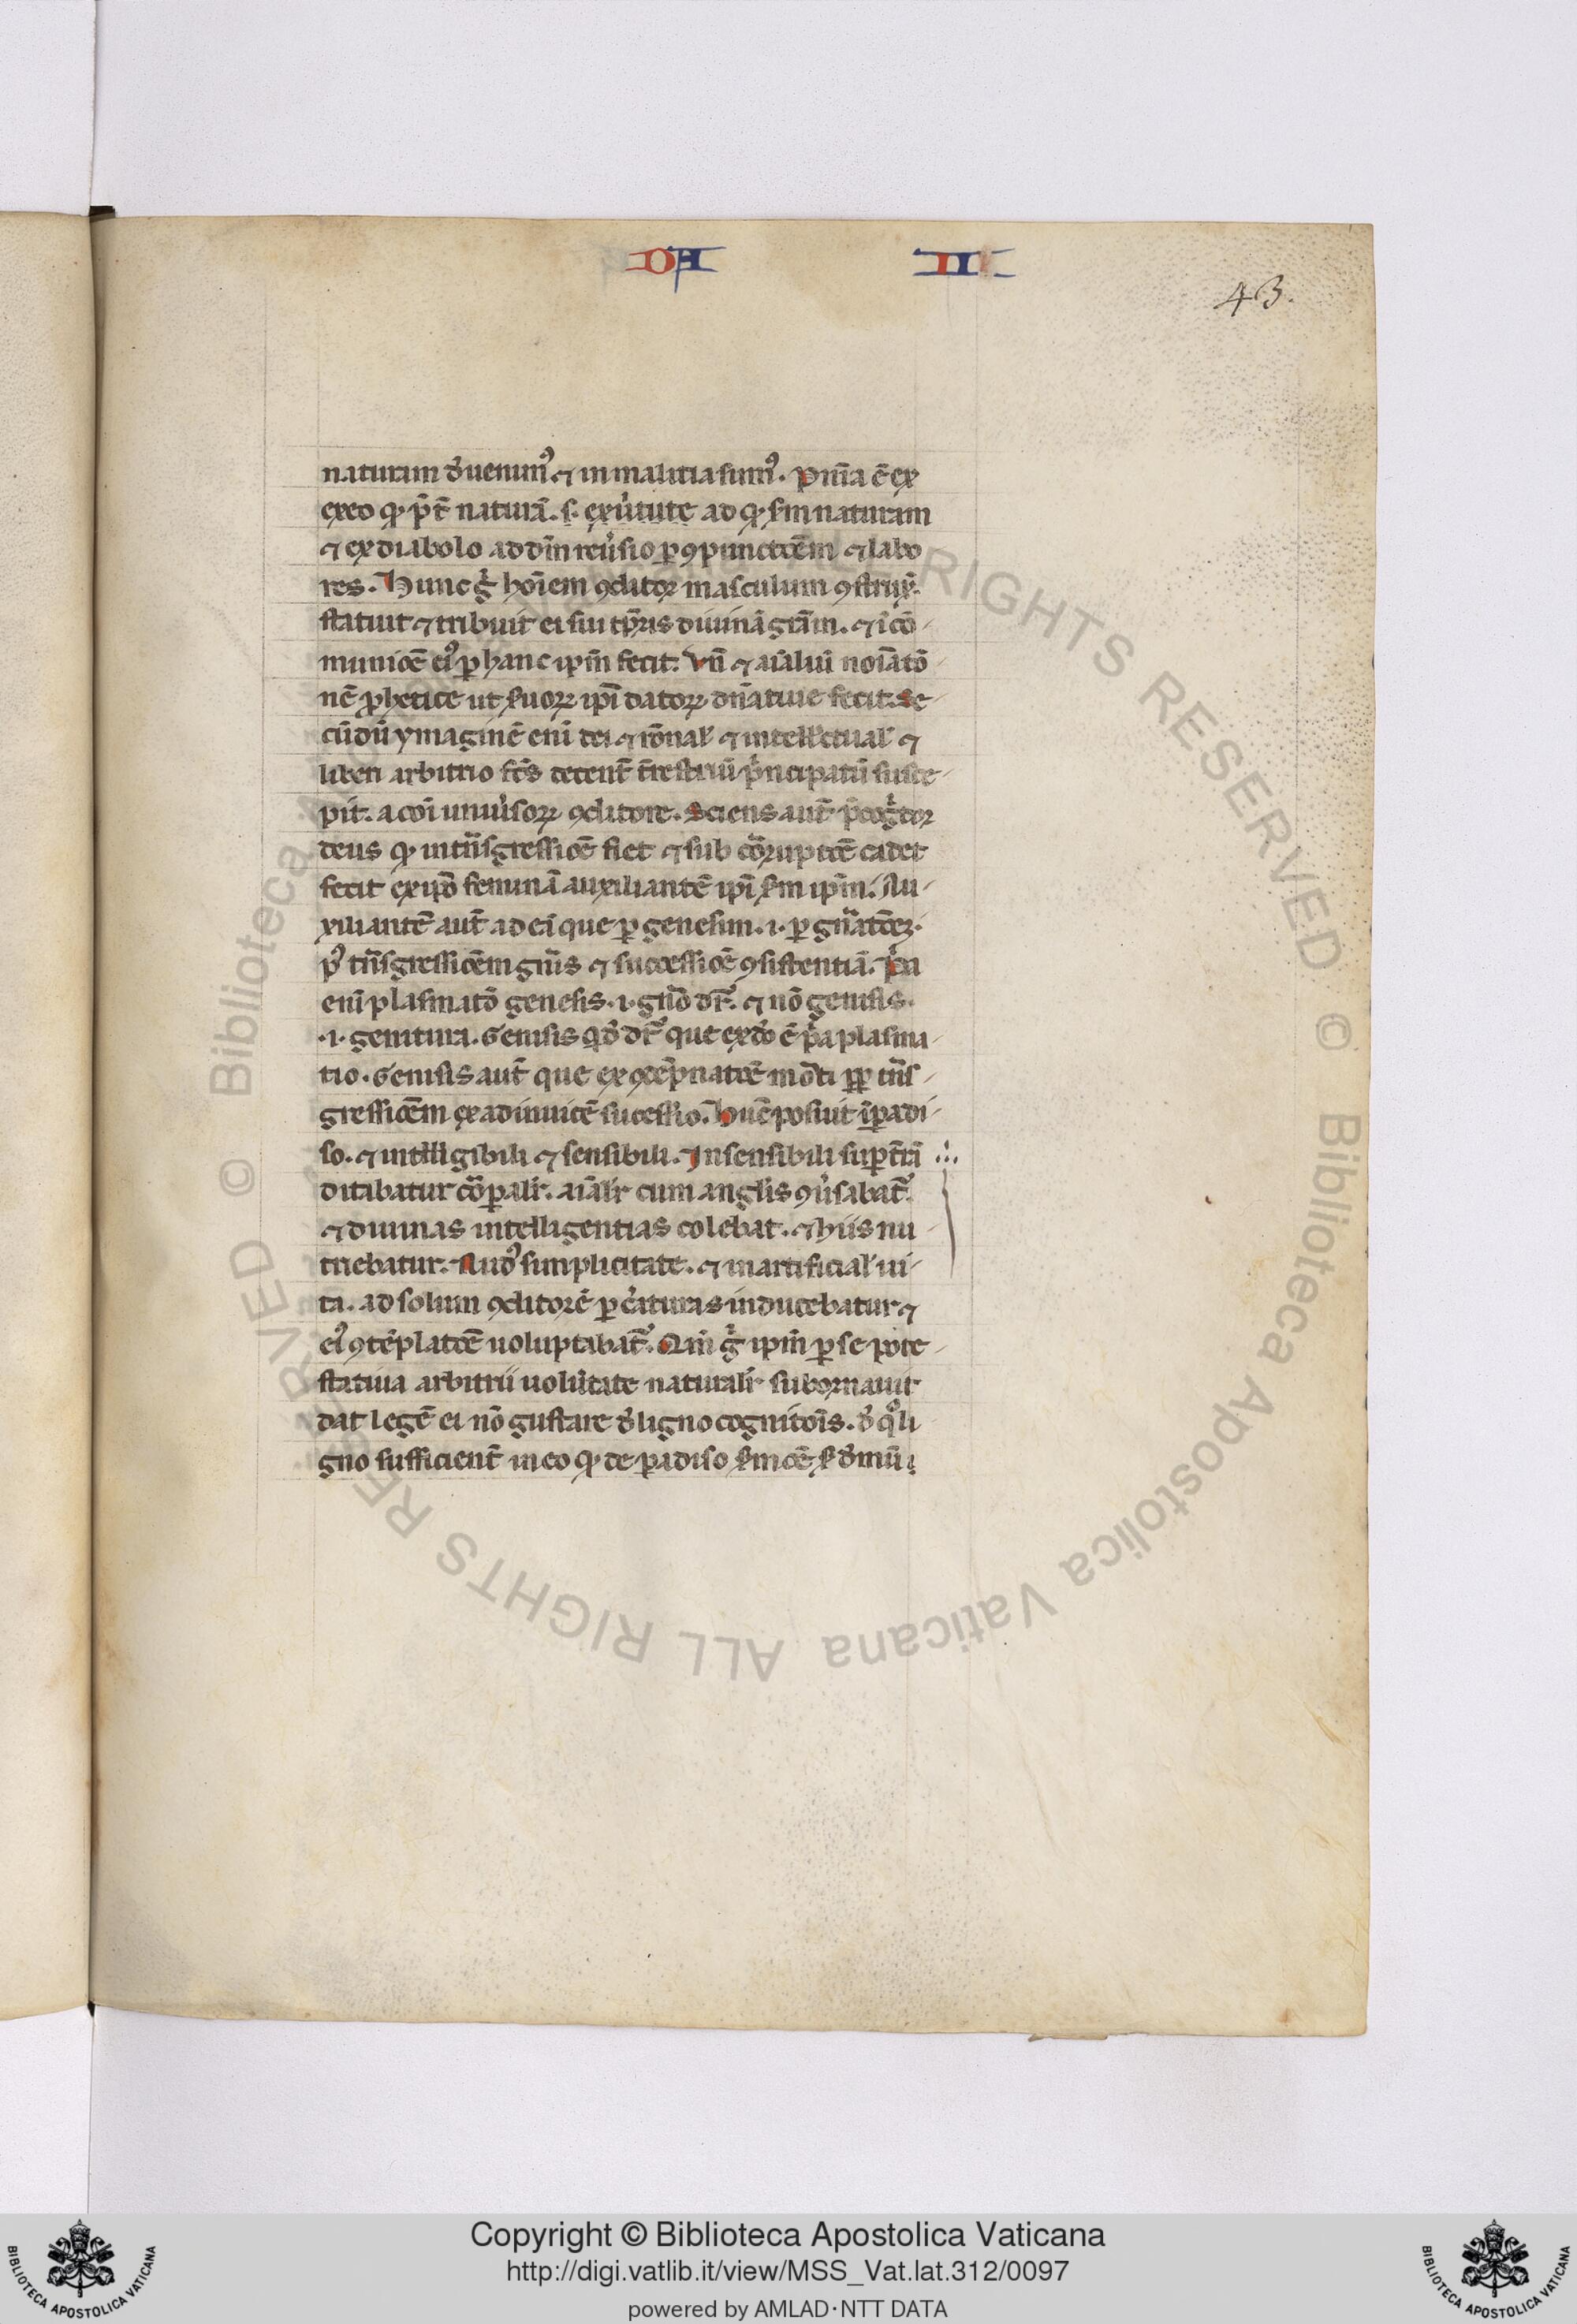 DA II
43.
naturam d̓uenim᾽ ⁊ in malitia sum᾽. pnīa ē ex
exeo qͥ p̄t̄ naturā. s. exu̓tute ad qͥ ẜm naturam
⁊ ex diabolo ad dm̄ reu̓sio ꝑ ꝯpuncctōem ⁊ labo
res. Hunc gͥ hoīem ꝯditor masculum ꝯstrux̄.
statuit ⁊ tribuit ei sui sp̄ris diuinā gr̄am. ⁊ ī cō
munioē ei᾽ ꝑ hanc ip̄m fecit. Vn̄ ⁊ aīaliū noīatō
nē ꝓhetice ut ẜuoꝝ ipī datoꝝ dn̄atiue fecit. Se
cūdū ymaginē enī dei ⁊ rōnal̓ ⁊ intell̓ectual̓ ⁊
liberi arbitrio fcs̄ decent̄ t̄restriū pͥncipatū susce
pit. a coī uniu̓soꝝ ꝯditore. Sciens aut̄ p̄cogͥtor
deus qͥ in tn̄sgressioē fiet ⁊ sub cor̄ruptōe cadet
fecit ex ip̄o feminā auxiliantē ipī ẜm ip̄m. Au
xiliantē aut̄ ad eā que ꝑ genesim. i. ꝑ gn̄atōeꝫ.
p᾽ tn̄sgressiōem gn̄is ⁊ successioē ꝯsistentiā. Pͥma
enī plasmatō genesis. i. gn̄o dr̄. ⁊ nō genisis.
.i. genitura. Genisis qd̓ dr̄ que ex d̓o ē pͥa plasma
tio. Genisis aut̄ que ex ꝯdēpnatōe mōti ꝓp̄ tn̄s
gressiōem ex adinuicē sucessio. Hūc posuit ī ꝑadi
so. ⁊ intell̓igibili ⁊ sensibili. In sensibili suꝑ t̄rā
ditabatur cor̄ꝑalir̓. aīalir̓ cum angl̓is ꝯu̓sabat᾽.
⁊ diuinas intelligentias colebat. ⁊ hiis nu
triebatur. Nud᾽ simplicitate. ⁊ inartificial̓ ui
ta. ad solum ꝯditorē ꝑ c̓aturas inducebatur ⁊
ei᾽ ꝯtēplatōe uoluptabat᾽. Qm̄ gͥ ip̄m ꝑ se pote
statiua arbitrii uolūtate naturalir̓ subornauit
dat legē ei nō gustare d̓ ligno cognitoīs. d̓ qͦ li
gno sufficient̄ in eo qͥ de ꝑadiso ẜmōē ẜ
Copyright © Biblioteca Apostolica Vaticana
http://digi.vatlib.it/view/MSS_Vat.lat.312/0097
powered by AMLAD·NTT DATA
BIBLIOTECA APOSTOLICA VATICANA
BIBLIOTECA APOSTOLICA VATICANA
© Biblioteca Apostolica Vaticana ALL RIGHTS RESERVED © Biblioteca Apostolica Vaticana ALL RIGHTS RESERVED